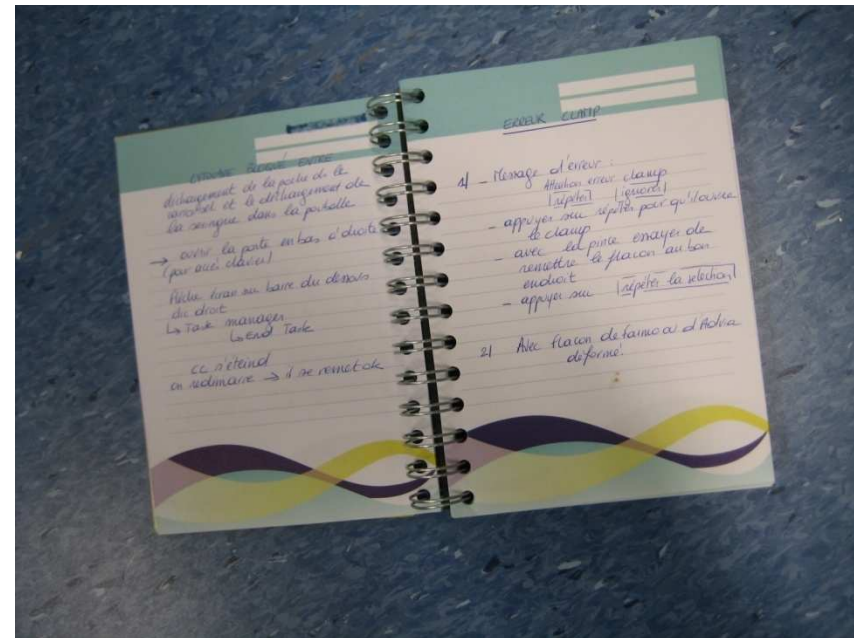 BLOQUÉ ENTRE
déchargement de la poche de le
carrousel et le déchargement de
la seringue dans la
→ ouvrir la porte en bas à droite
(par accès clavier)
barre du dessous
du droit
↳ Task manager
↳ End Task
CC s'éteind
on redémarre → il se remet ok
ERREUR CLAMP
1/ - Message d'erreur :
Attention erreur clamp
répéter ignorer
- appuyer sur répéter pour qu'il ouvre
le clamp
- avec la pince essayer de
remettre le flacon au bon
endroit
- appuyer sur répéter la selection
2/ Avec flacon de ou d'
déformé!